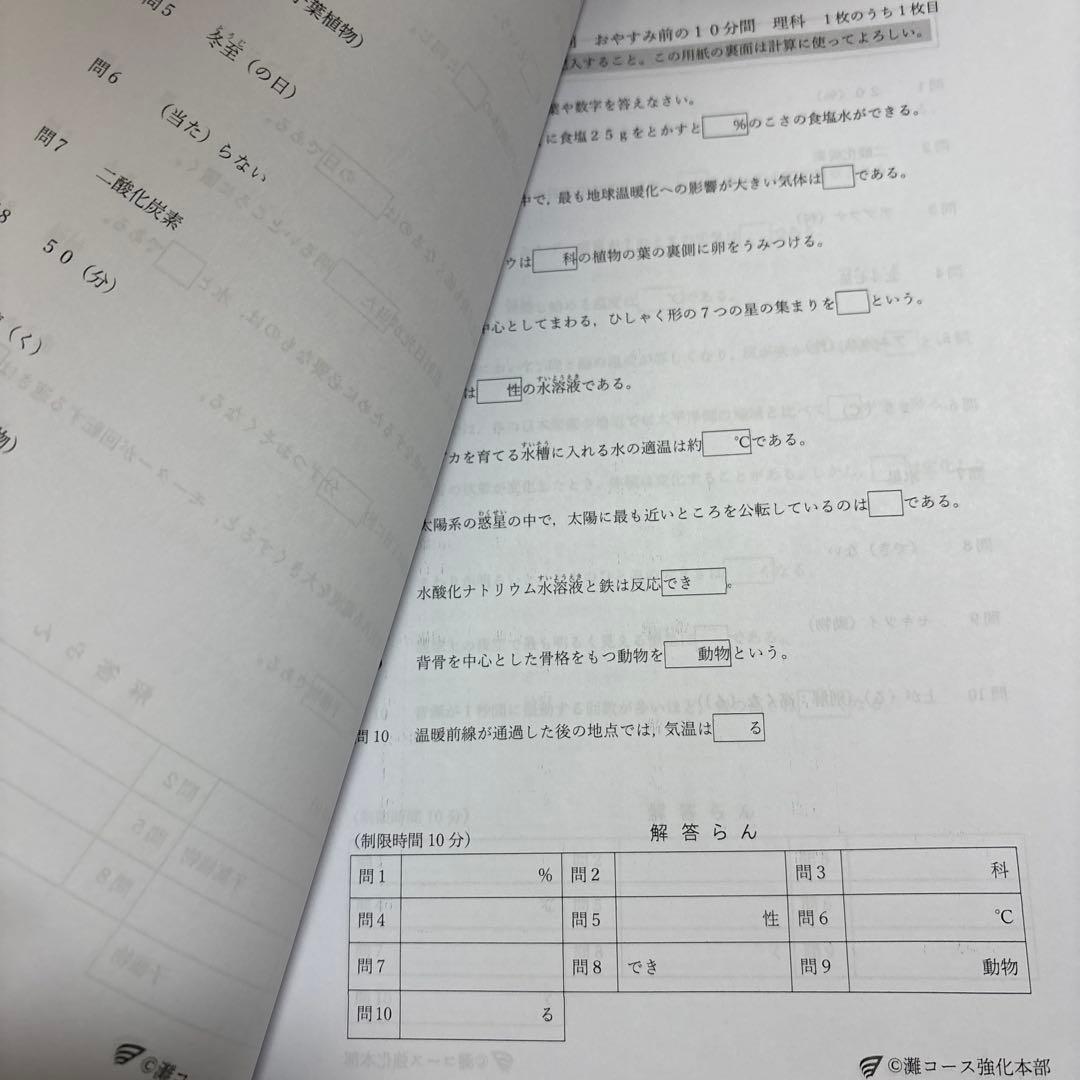 葉植物)
問5
冬至(の日)
問6
(当た)らない
問7
二酸化炭素
8
50(分)
(く)
物)
©灘コース
おやすみ前の10分間 理科 1枚のうち1枚目
入すること。この用紙の裏面は計算に使ってよろしい。
葉や数字を答えなさい。
に食塩25gをとかすと %のこさの食塩水ができる。
中で,最も地球温暖化への影響が大きい気体は である。
ウは 科の植物の葉の裏側に卵をうみつける。
中心としてまわる,ひしゃく形の7つの星の集まりを という。
は 性の水溶液である。
カを育てる水槽に入れる水の適温は約 ℃である。
太陽系の惑星の中で,太陽に最も近いところを公転しているのは である。
水酸化ナトリウム水溶液と鉄は反応でき 。
背骨を中心とした骨格をもつ動物を 動物という。
問10 温暖前線が通過した後の地点では,気温は る
(制限時間10分)
解答らん
問1 % 問2 問3 科
問4 問5 性 問6 ℃
問7 問8 でき 問9 動物
問10 る
©灘コース強化本部